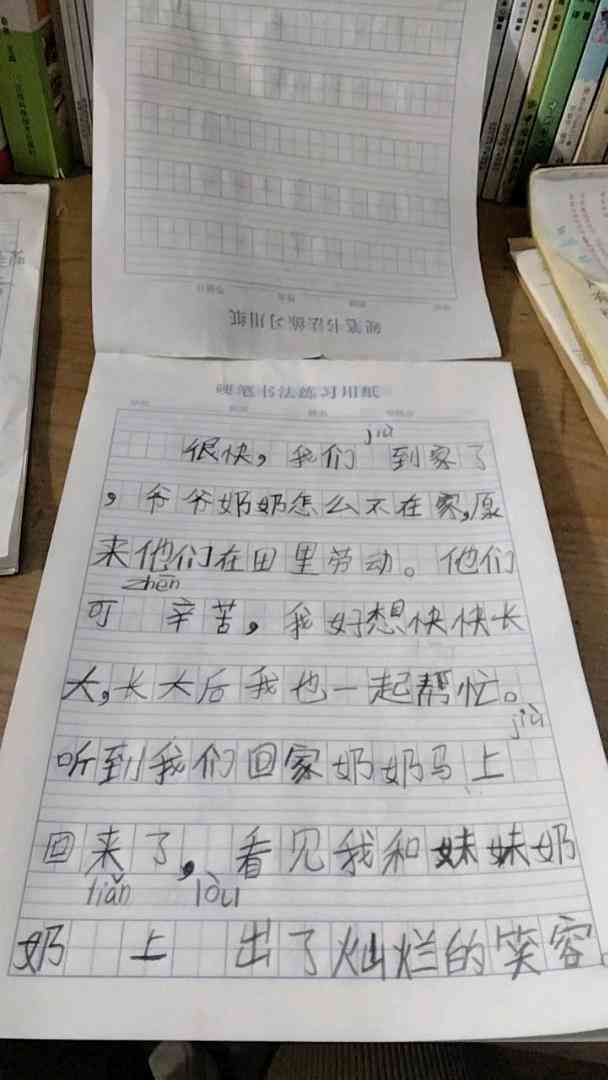 硬笔书法练习用纸
硬笔书法练习用纸
jiù
很快，我们 到家了
，爷爷奶奶怎么不在家，原
来他们在田里劳动。他们
zhēn
可 辛苦，我好想快快长
大，长大后我也一起帮忙。
jiù
听到我们回家奶奶马上
回来了，看见我和妹妹奶
liǎn lòu
奶 上 出了灿烂的笑容